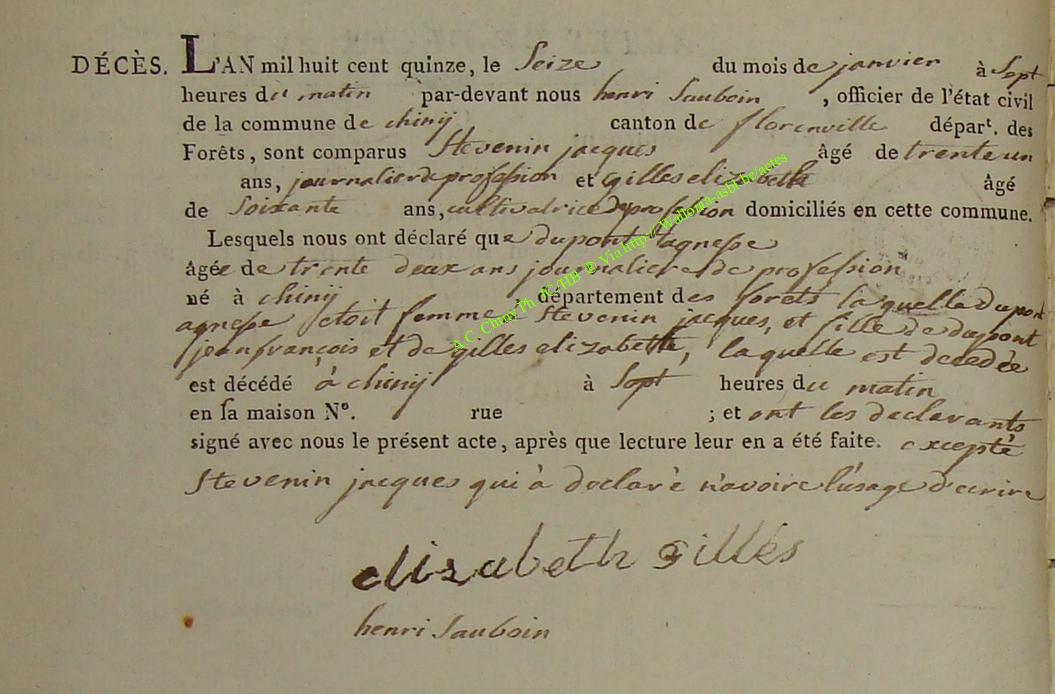 DÉCÈS. L'AN mil huit cent quinze, le Seize du mois de janvier à Sept
heures du matin par-devant nous henri Sauboin , officier de l'état civil
de la commune de chinij canton de florenville départ. des
Forêts, sont comparus Stevenin jacques âgé de trente un
ans, journalier de profession et gilles elizabeth âgé
de Soixante ans, cultivatrice de profession domiciliés en cette commune.
Lesquels nous ont déclaré que dupont agnesse
âgée de trente deux ans journaliere de profession
né à chinij , département des forêts la quelle dupont
agnesse etoit femme à Stevenin jacques, et fille de dupont
jean françois et de gilles elizabette, la quelle est decedée
est décédé à chinij à Sept heures du matin
en sa maison N°. rue ; et ont les declarants
signé avec nous le présent acte, après que lecture leur en a été faite. excepté
Stevenin jacques qui à declaré n'avoire l'usage d'ecrire
elizabeth gillès
henri Sauboin